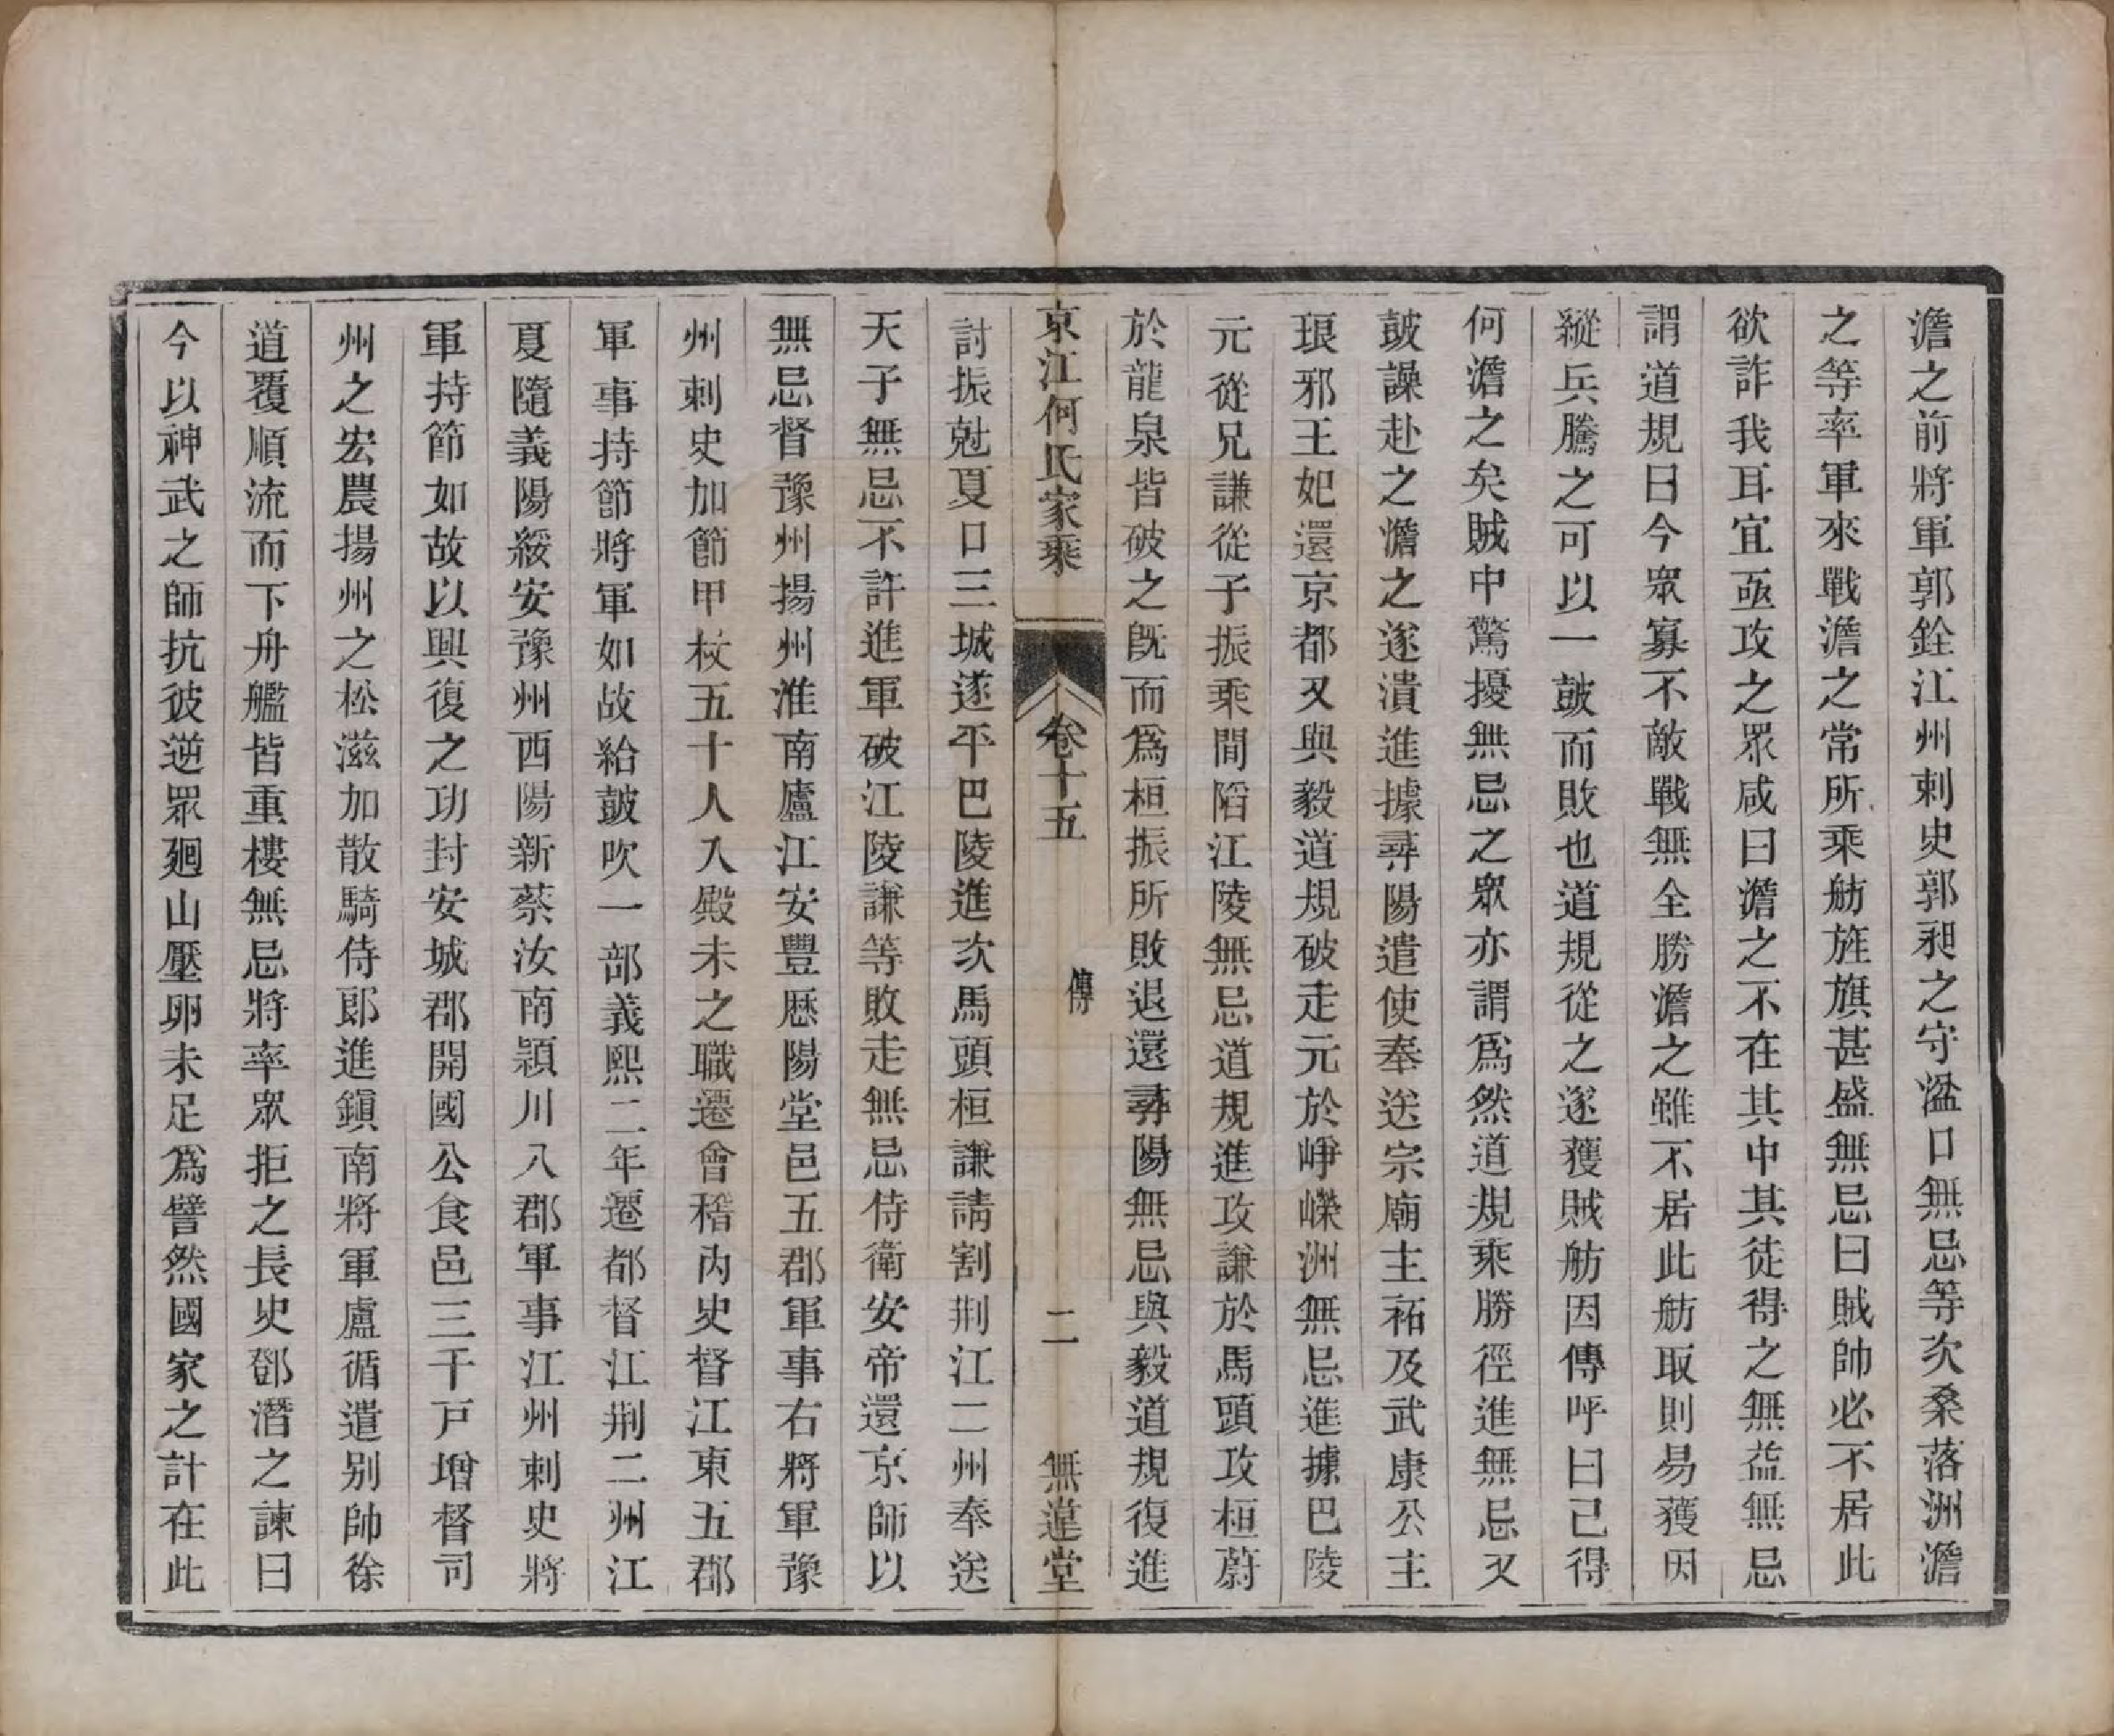 澹之前將軍郭銓江州刺史郭昶之守湓口無忌等次桑落洲澹
之等率軍來戰澹之常所乘舫旌旗甚盛無忌曰賊帥必不居此
欲詐我耳宜亟攻之眾咸曰澹之不在其中其徒得之無益無忌
謂道規曰今眾寡不敵戰無全勝澹之雖不居此舫取則易獲因
縱兵騰之可以一皷而敗也道規從之遂獲賊舫因傳呼曰已得
何澹之矣賊中驚擾無忌之眾亦謂爲然道規乘勝徑進無忌又
皷譟赴之澹之遂潰進據尋陽遣使奉送宗廟主祏及武康公主
琅邪王妃還京都又與毅道規破走元於崢嶸洲無忌進據巴陵
元從兄謙從子振乘間陷江陵無忌道規進攻謙於馬頭攻桓蔚
於龍泉皆破之旣而爲桓振所敗退還尋陽無忌與毅道規復進
京江何氏家乘 卷十五 傳 二 無違堂
討振尅夏口三城遂平巴陵進次馬頭桓謙請割荆江二州奉送
天子無忌不許進軍破江陵謙等敗走無忌侍衛安帝還京師以
無忌督豫州揚州淮南廬江安豐歷陽堂邑五郡軍事右將軍豫
州刺史加節甲杖五十人入殿未之職遷會稽內史督江東五郡
軍事持節將軍如故給皷吹一部義熙二年遷都督江荆二州江
夏隨義陽綏安豫州西陽新蔡汝南潁川八郡軍事江州刺史將
軍持節如故以興復之功封安城郡開國公食邑三千戸增督司
州之宏農揚州之松滋加散騎侍郞進鎮南將軍盧循遣别帥徐
道覆順流而下舟艦皆重樓無忌將率眾拒之長史鄧潛之諫曰
今以神武之師抗彼逆眾廻山壓卵未足爲譬然國家之計在此